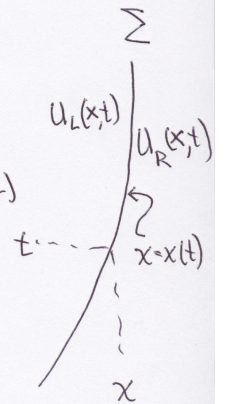 Σ
U_L(x,t)
U_R(x,t)
)
t
x=x(t)
x